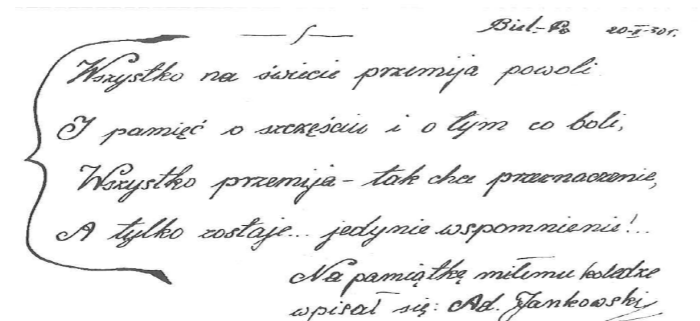 Biel.-Po 20-X-30r.
Wszystko na świecie przemija powoli
I pamięć o szczęściu i o tym co boli,
Wszystko przemija - tak chce przeznaczenie,
A tylko zostaje... jedynie wspomnienie!..
Na pamiątkę miłemu koledze
wpisał się: Ad. Jankowski